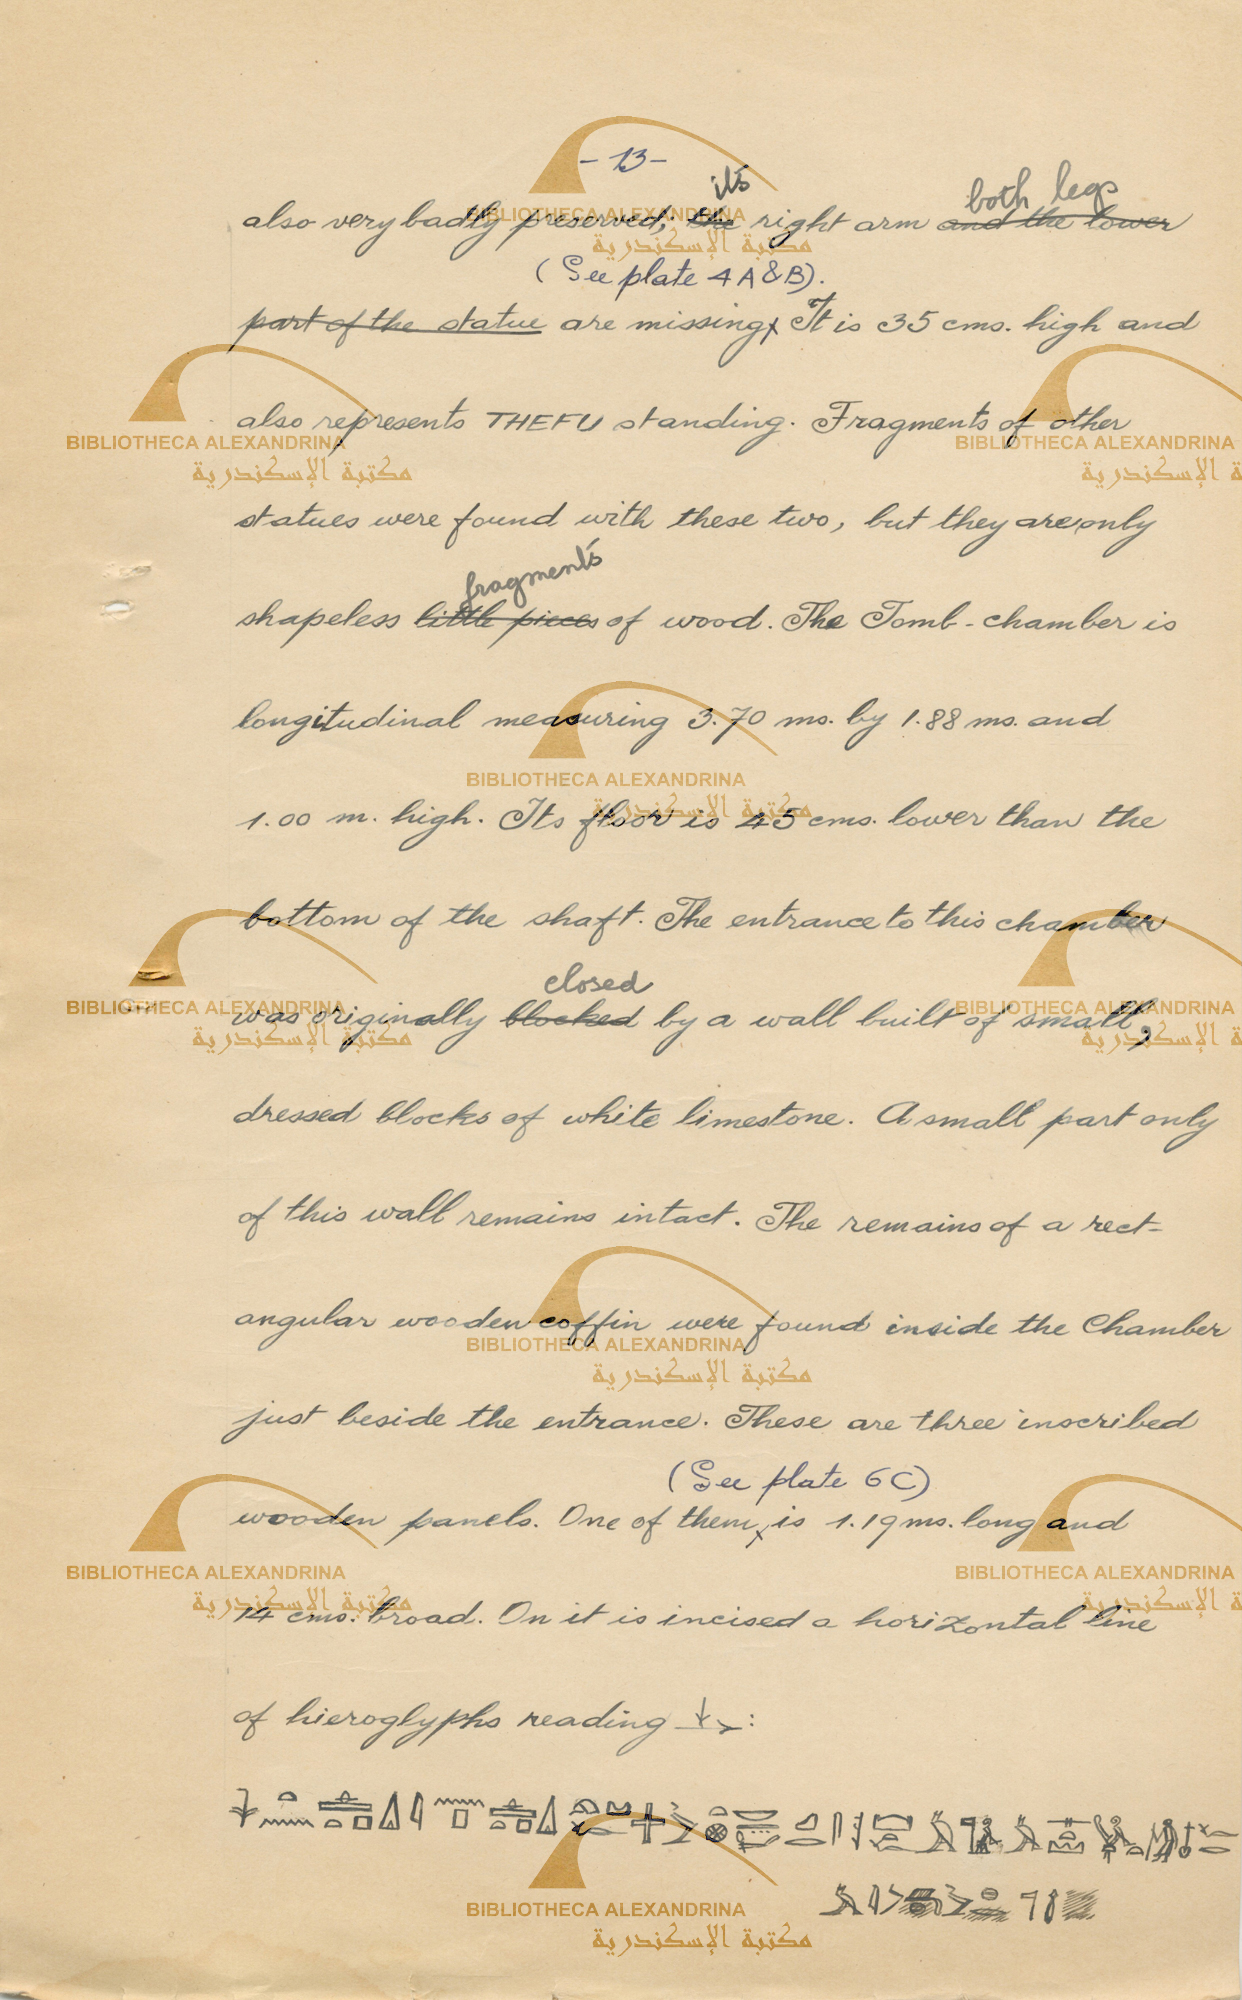 - 13 -
it's both legs
also very badly preserved; the right arm and the lower
(See plate 4A&B).
part of the statue are missing x It is 35 cms. high and
also represents THEFU standing. Fragments of other
statues were found with these two, but they are only
fragments
shapeless little pieces of wood. The Tomb-chamber is
longitudinal measuring 3.70 ms. by 1.88 ms. and
1.00 m. high. Its floor is 45 cms. lower than the
bottom of the shaft. The entrance to this chamber
closed
was originally blocked by a wall built of small,
dressed blocks of white limestone. A small part only
of this wall remains intact. The remains of a rect-
angular wooden coffin were found inside the Chamber
just beside the entrance. These are three inscribed
(See plate 6C)
wooden panels. One of them x is 1.19 ms. long and
14 cms. broad. On it is incised a horizontal line
of hieroglyphs reading :
BIBLIOTHECA ALEXANDRINA
مكتبة الإسكندرية